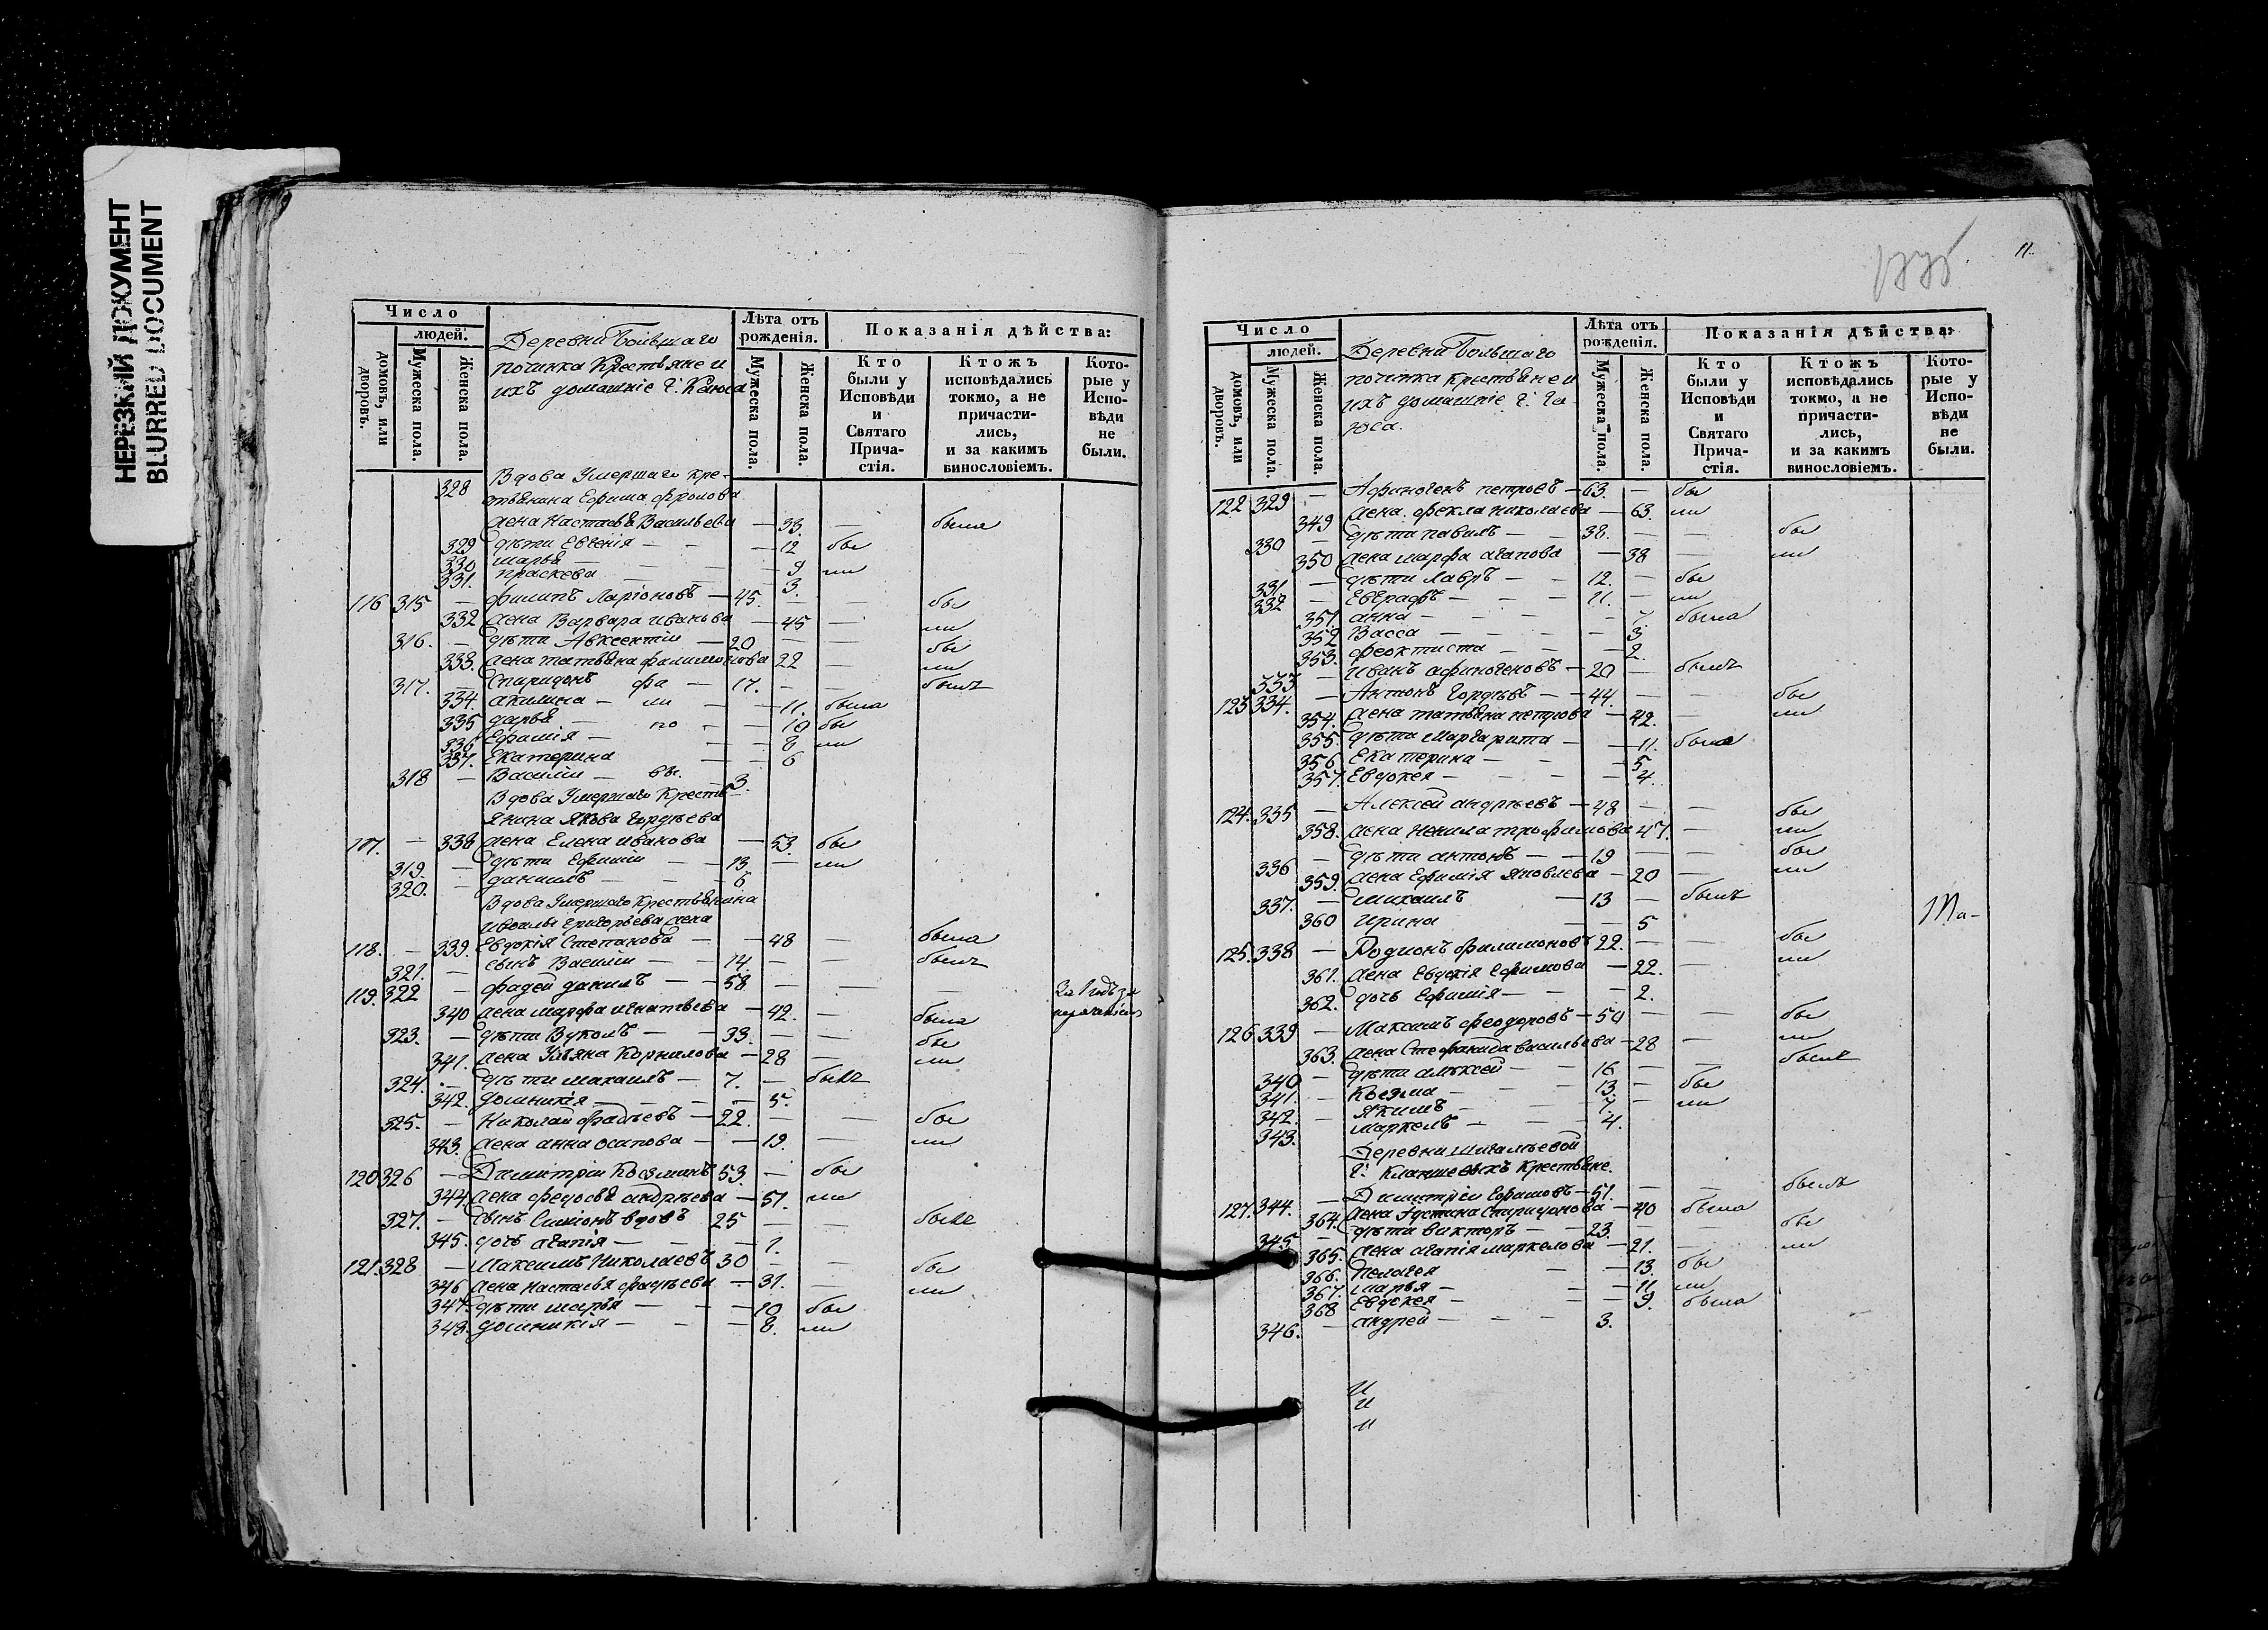 НЕРЕЗКИЙ ДОКУМЕНТ
BLURRED DOCUMENT
Число
людей.
домовъ, или дворовъ.
Мужеска пола.
Женска пола.
Деревни Большаго
починка Крестьяне и
ихъ домашніе Г.
Лѣта отъ рожденія.
Мужеска пола.
Женска пола.
Показанія дѣйства:
Кто были у Исповѣди и Святаго Прича-стія.
Ктожъ исповѣдались токмо, а не причасти-лись, и за какимъ винословіемъ.
Кото-рые у Испо-вѣди не были.
328 Вдова Умершаго Кре-
стьянина Ефима Фролова
жена Настасья Васильева — 33. — была
329 дѣти Евгенія — — 12 бы
330 марья — — 9 ли
331. праскева — — 3.
116 315 — Филипъ Ларіоновъ — 45. — — бы
332 жена Варвара Иванова — 45 — ли
316. — дѣти Авксентій — 20 — — бы
333. жена татьяна филимонова 22 — ли
317. — Спиридонъ фи — 17. — — былъ
334. акилина — ли — — 11. была
335 дарья — по — — 10 бы
336 Ефимія — — — 8 ли
337. Екатерина — — 6
318 — Василій — вы. — 3.
Вдова Умершаго Кресть
янина Якова Гордѣева
117. — 338 жена Елена иванова — 53. бы
319. — дѣти Ефимій — — 13 — ли
320. — данилъ — — 6
Вдова Умершаго Крестьянина
григорьева жена
118. — 339. Евдокія Степанова — — 48 — была
321. — сынъ Василій — — 14. — — былъ
119. 322 — фадей данилъ — — 58 — — — За 1 годъ за
нераченіемъ
340 жена марфа игнатьева — 42. — была
323. — дѣти Вуколъ — — 33. — — бы
341. жена Ульяна Корнилова — 28 — ли
324. — дѣти михаилъ — 7. — былъ
342. домникія — — — 5.
325. — Николай фадѣевъ — 22. — — бы
343. жена анна осипова — — 19. — ли
120 326 — Димитрій Козминъ 53. — бы
344. жена федосья андрѣева — 51. ли
327. — сынъ Симіонъ вдовъ 25 — — былъ
345. дочь агапія — — — 1.
121. 328 — Максимъ Николаевъ 30 — — бы
346 жена Настасья фадѣева — 31. — ли
347. дѣти марья — — — 10 бы
348. домникія — — — 8. ли
11.
Число
людей.
домовъ, или дворовъ.
Мужеска пола.
Женска пола.
Деревни Большаго
починка крестьяне и
ихъ домашніе Г. Га-
зоса.
Лѣта отъ рожденія.
Мужеска пола.
Женска пола.
Показанія дѣйства:
Кто были у Исповѣди и Святаго Прича-стія.
Ктожъ исповѣдались токмо, а не причасти-лись, и за какимъ винословіемъ.
Кото-рые у Испо-вѣди не были.
122 329 — Афиногенъ петровъ — 63. — бы
349 жена фекла николаева — 63. ли
330 — дѣти павилъ — — 38. — — бы
350 жена марфа агапова — 38 — ли
331. — дѣти Лавръ — — 12. — бы
332 — Евграфъ — — — 11. — ли
351. анна — — — 7. была
352 Васса — — — — 3
353. феоктиста — — — 2.
333. — Иванъ афиногеновъ — 20 — былъ
123 334. — Антонъ Гордѣевъ — — 44. — бы
354. жена татьяна петрова — 42. — ли
355. дѣти Маргарита — — 11. была
356 Екатерина — — — 5
357. Евдокея — — — 4.
124. 335 — Алексей андрѣевъ — 48 — — бы
358. жена Ненила трофимова 47. — ли
336 — дѣти антонъ — — 19 — — бы
359. жена Ефимія Яковлева — 20 — ли
337. — михаилъ — 13 — былъ
360 ирина — — 5
Ма-
125. 338 — Родионъ филимоновъ 22. — — бы
361. жена Евдокія Ефимова — 22. — ли
362. дочь Ефимія — — — 2.
126 339 — Максимъ феодоровъ — 50 — — бы
363. жена Стефанида васильева — 28 — ли
340 — дѣти алексей — — 16 — — былъ
341. — Козма — — — 13. — бы
342. — Якимъ — — 7. — ли
343. — маркелъ — — — 4.
Деревни Шигалѣевой
Г. Крестьяне.
127. 344. — Димитрій Ефимовъ — 51. — — былъ
364. жена Устина Спиридонова — 40 была
345 — дѣти викторъ — — 23. — — бы
365. жена агапія маркелова — 21. — ли
366. пелагея — — 13. бы
367. марья — — — 11 ли
368 Евдокея — — — 9. была
346. — андрей — — — 3.
И
И
И